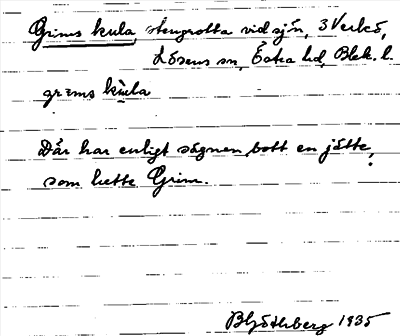 Grims kula stengrotta vid sjön, 3 Verkö,
Lösens sn, Östra hd, Blek. l.
grɪms kùla
Där har enligt sägnen bott en jätte,
som hette Grim.
1935